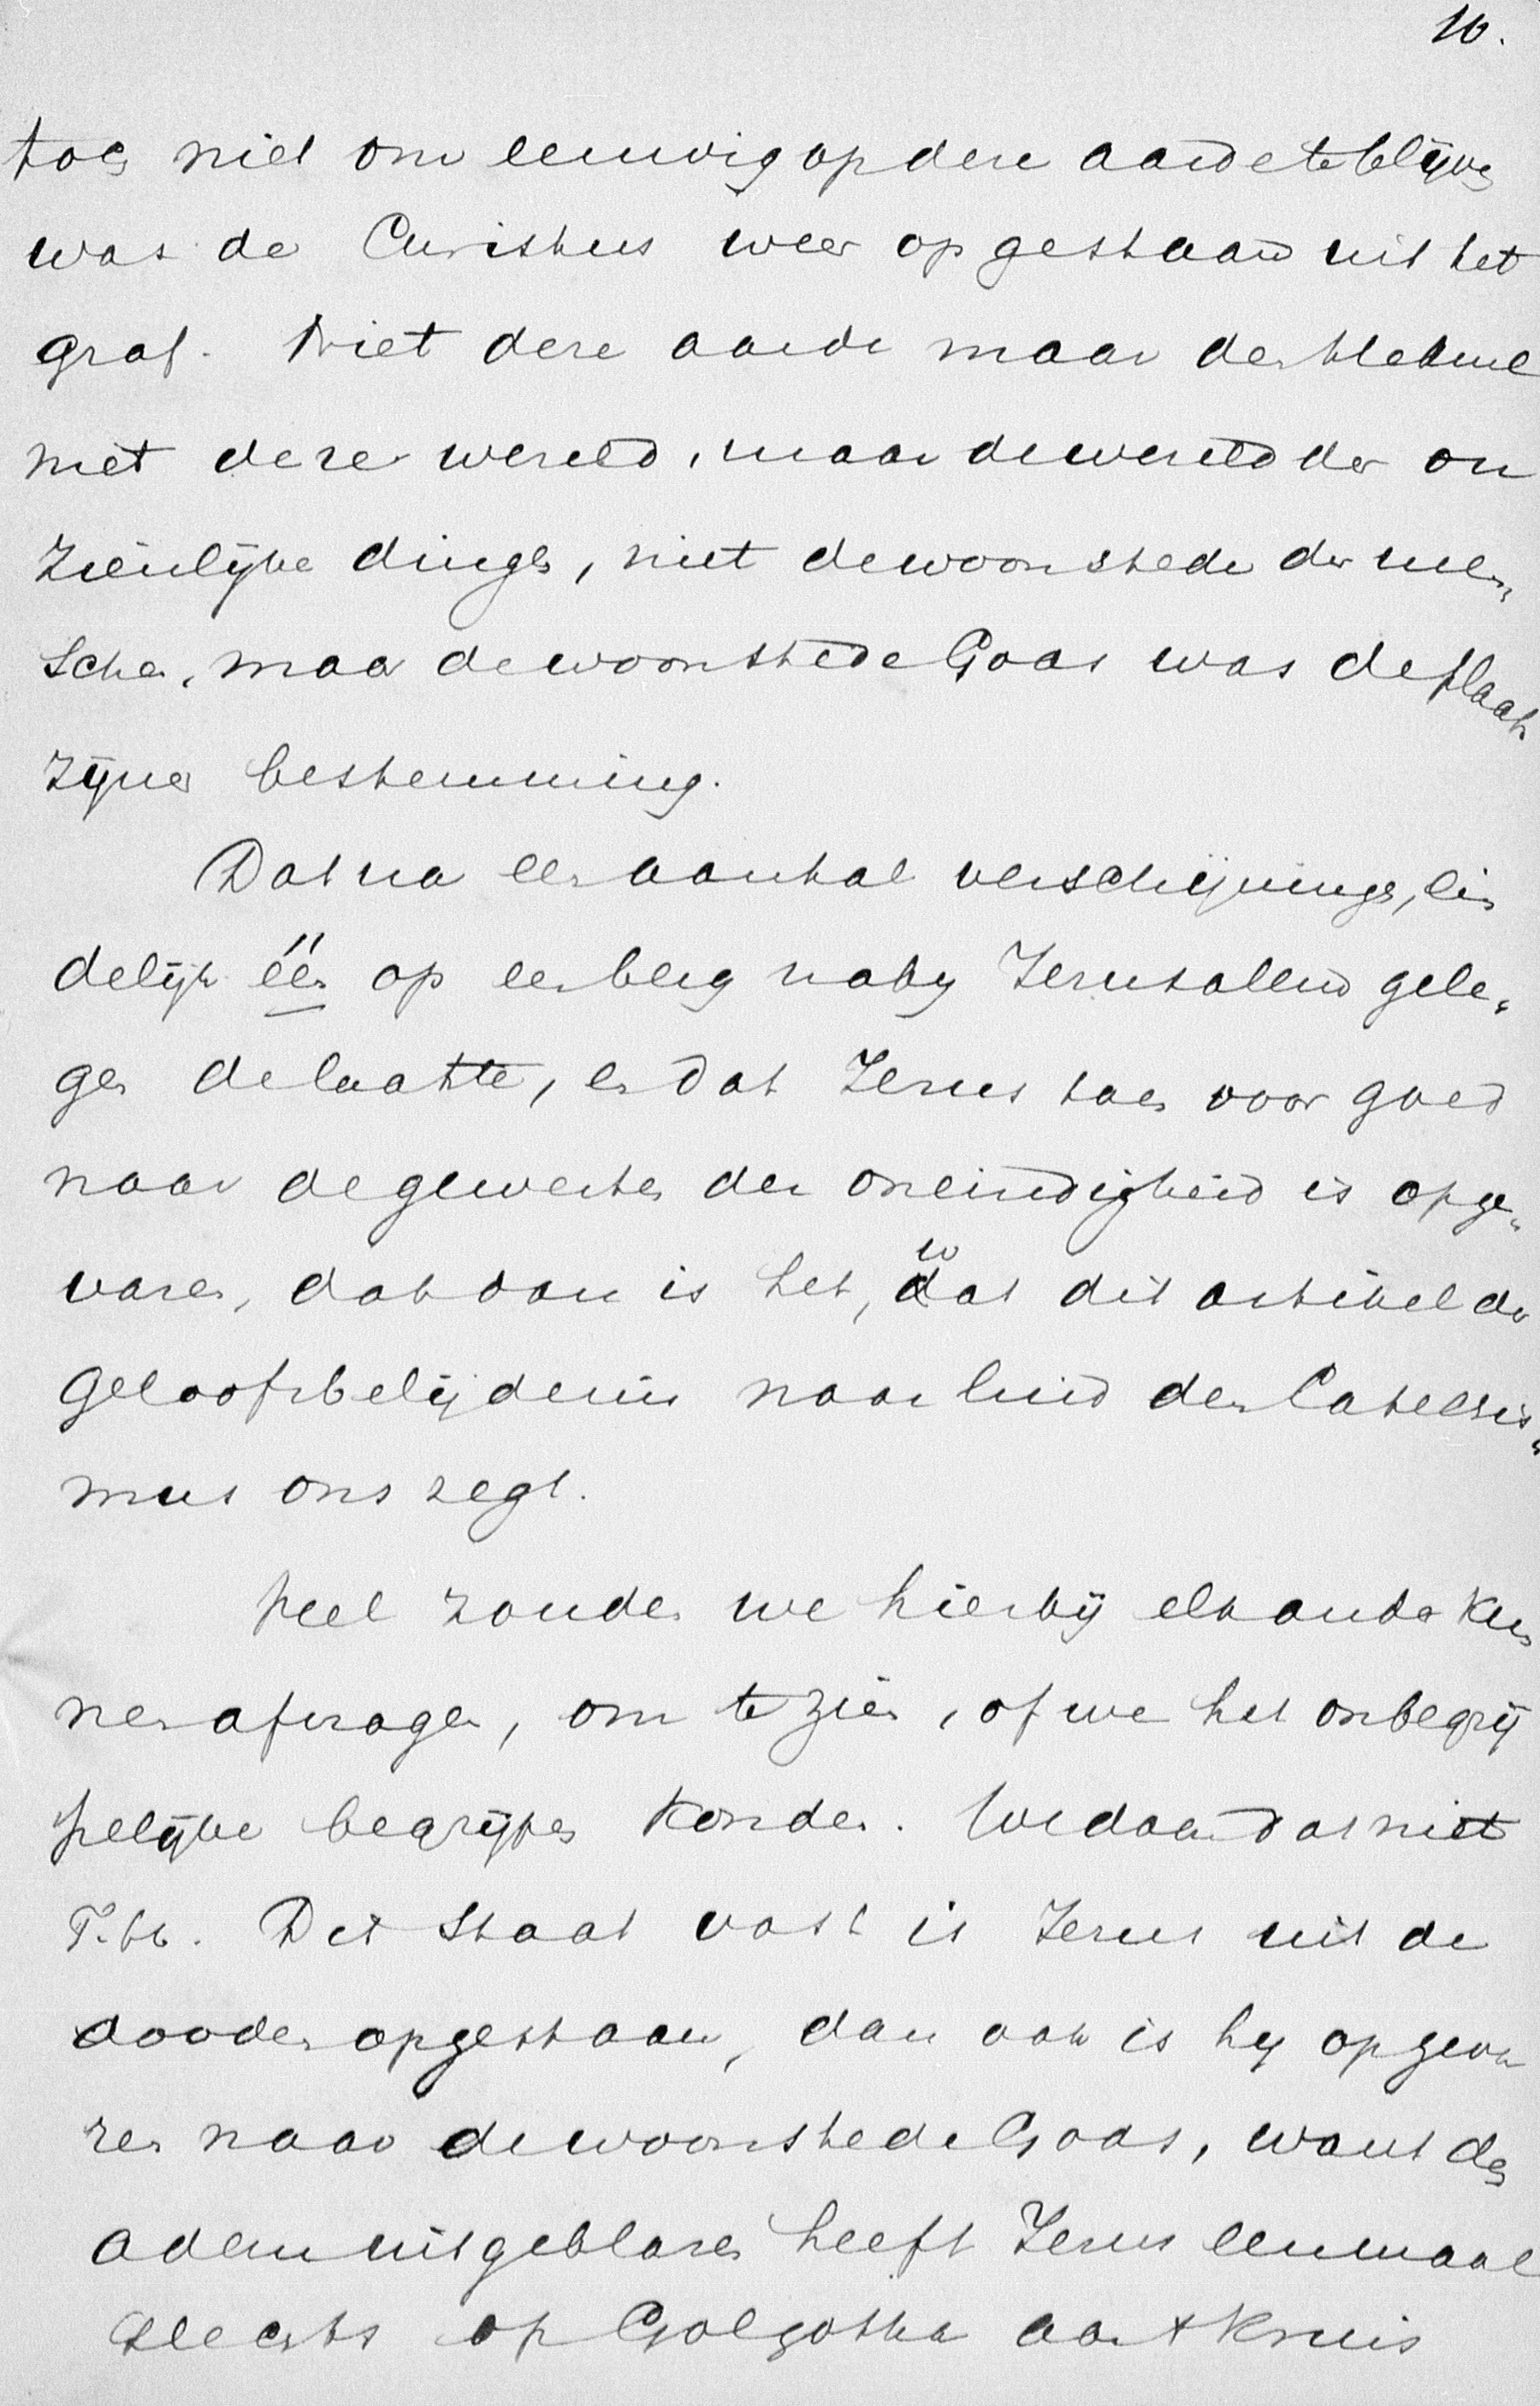 10.
toch niet om eeuwig op deze aarde te blijven
was de Christus weer opgestaan uit het
graf. Niet deze aarde maar de hemel
niet deze wereld, maar de wereld der on
zienlijke dingen, niet de woonstede der men„
schen, maar de woonstede Gods was de plaats
zijner bestemming.
Dat na een aantal verschijningen, ein
delijk één op een berg naby Jerusalem gele„
gen de laatste, en dat Jezus toen voor goed
naar de gewesten der oneindigheid is opge„
varen, dat dan is het, wat dit artikel der
Geloofsbelijdenis naar luid den Catechis„
mus ons zegt.
Veel zouden we hierbij elkander kun
nen afvragen, om te zien, of we het onbegrij
pelijke begrijpen konden. We doen dat niet
T.H. Dit staat vast is Jezus uit de
dooden opgestaan, dan ook is hy opgeva
ren naar de woonstede Gods, want den
adem uitgeblazen heeft Jezus eenmaal
slechts op Golgotha aan 't kruis